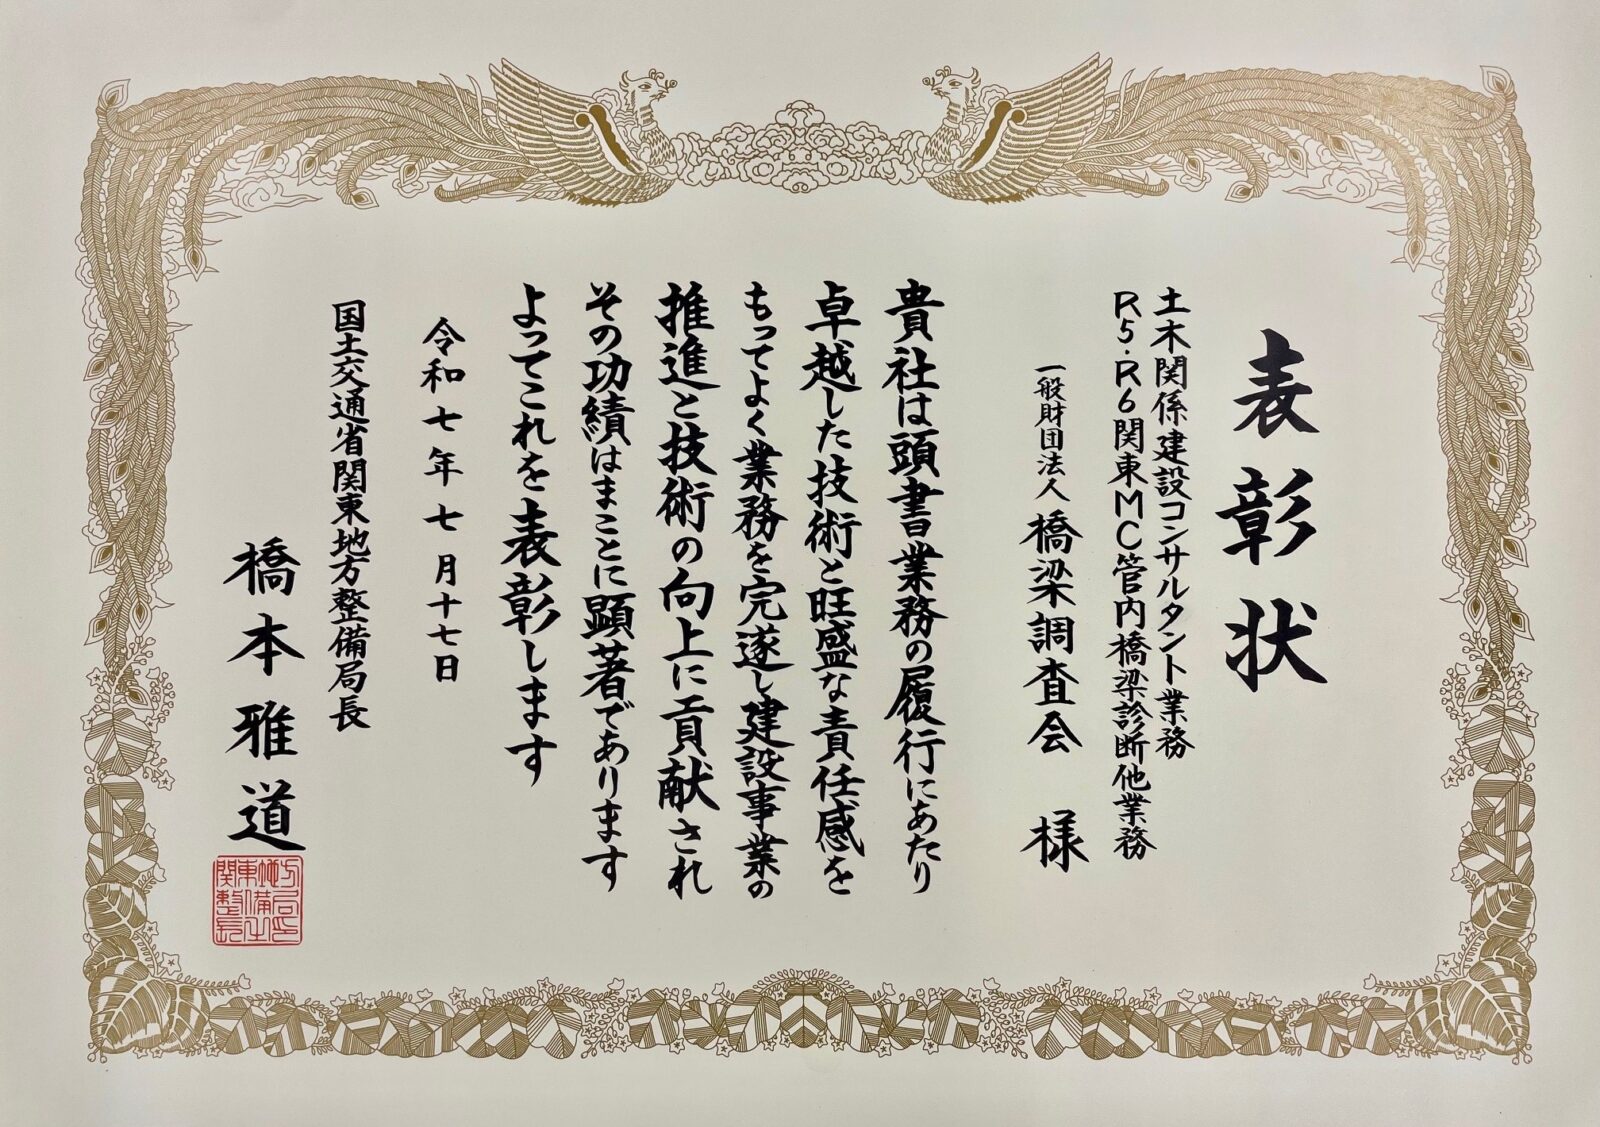 表彰状
土木関係建設コンサルタント業務
R5.R6関東MC管内橋梁診断他業務
一般財団法人橋梁調査会 様
貴社は頭書業務の履行にあたり
卓越した技術と旺盛な責任感を
もってよく業務を完遂し建設事業の
推進と技術の向上に貢献され
その功績はまことに顕著であります
よってこれを表彰します
令和七年七月十七日
国土交通省関東地方整備局長
橋本雅道